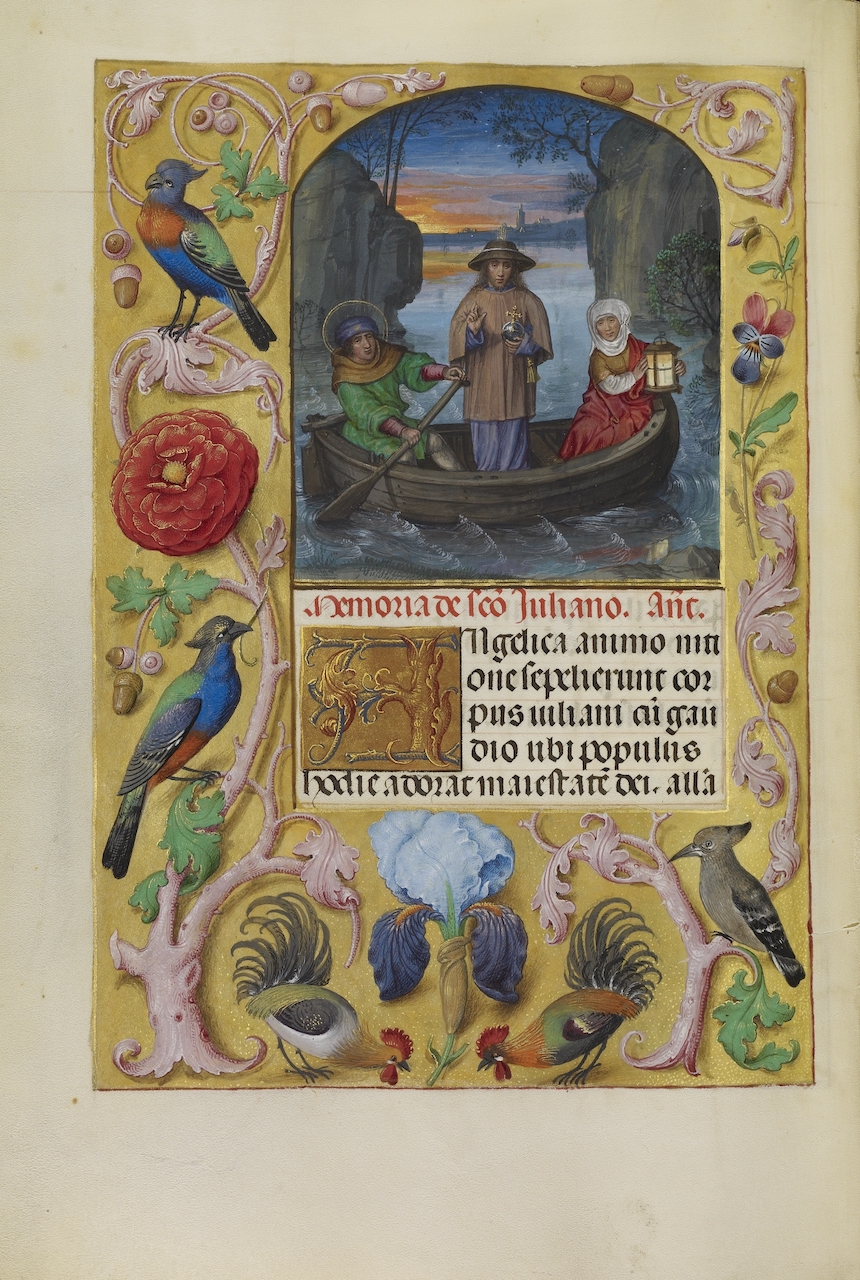 Memoria de scō Juliano. Añt.
Angelica animo niti
one sepelierunt cor
pus iuliani cū gau
dio ubi populus
hodie adorat maiestatē dei. all'a